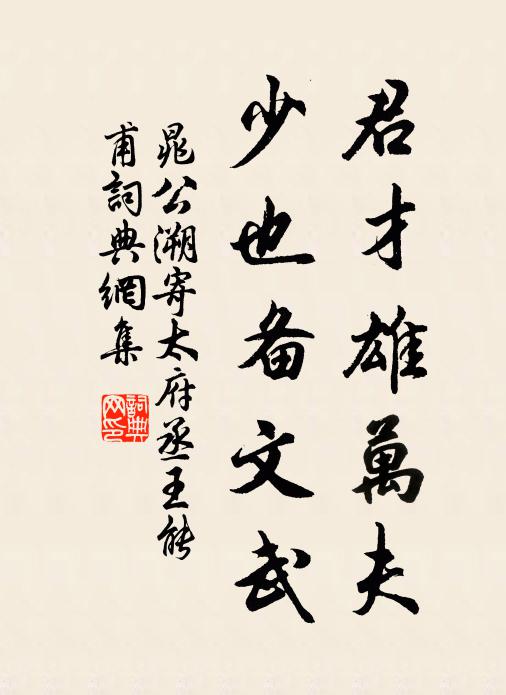 君才雄萬夫
少也备文武
晁公溯寄太府丞王能
甫詞典網集
詞典网印